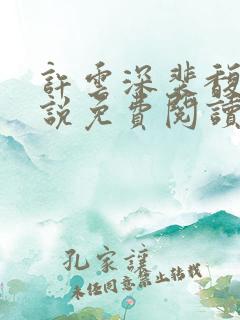 許雲深裴馥
說免費閱讀
孔家謹
未經同意禁止轉載